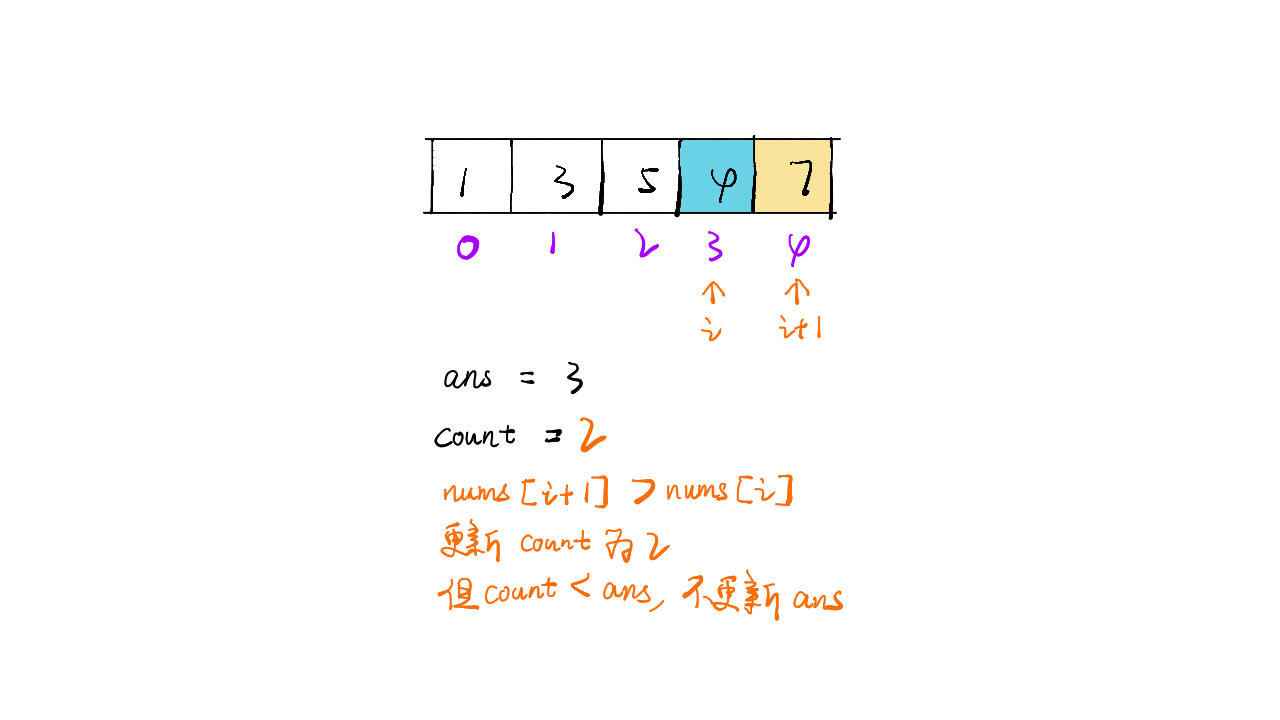 1 3 5 4 7
0 1 2 3 4
↑ ↑
i i+1
ans = 3
count = 2
nums [i+1] > nums [i]
更新 count 为 2
但 count < ans, 不更新 ans